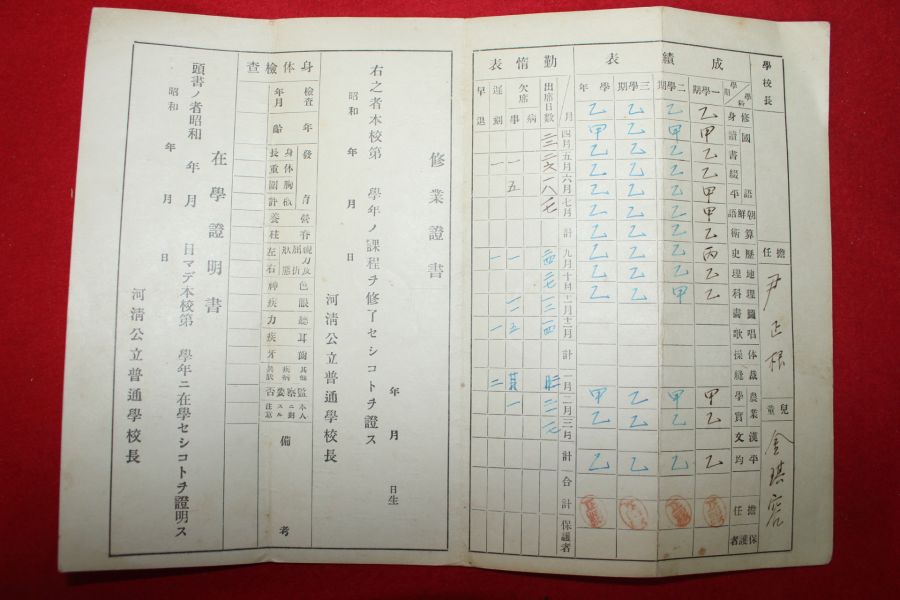 學校長
擔任 尹
兒童 金琪
成績表
學期 學齡
一學期
二學期
三學期
學年
修身
國語
讀書
綴字
朝鮮語
算術
歷史
地理
理科
圖畫
唱歌
体操
裁縫
農業
學實
漢文
平均
擔任
保護者
乙 甲 乙 乙 甲 甲 乙 丙 乙 乙 甲 乙 乙
乙 甲 乙 乙 乙 乙 乙 乙 乙 甲 甲 乙 乙
乙 乙 乙 乙 乙 乙 乙 乙 乙 乙 乙 乙 乙
乙 甲 乙 乙 乙 乙 乙 乙 乙 乙 甲 乙 乙
勤惰表
月 四月 五月 六月 七月 計 九月 十月 十一月 十二月 計 一月 二月 三月 計 合計 保護者
出席日數
欠席 病 事
遲刻
早退
修業證書
年 月 日生
右之者本校第 學年ノ課程ヲ修了セシコトヲ證ス
昭和 年 月 日
河清公立普通學校長
身体檢查
檢查年月
年齡
發育
身長
体重
胸圍
榮養
脊柱
視力
左右
屈折狀態
色神
眼疾
聽力
耳疾
齒牙
其他疾病異狀
監察要否
本人ニ對スル注意
備考
在學證明書
頭書ノ者昭和 年 月 日マデ本校第 學年ニ在學セシコトヲ證明ス
昭和 年 月 日
河清公立普通學校長